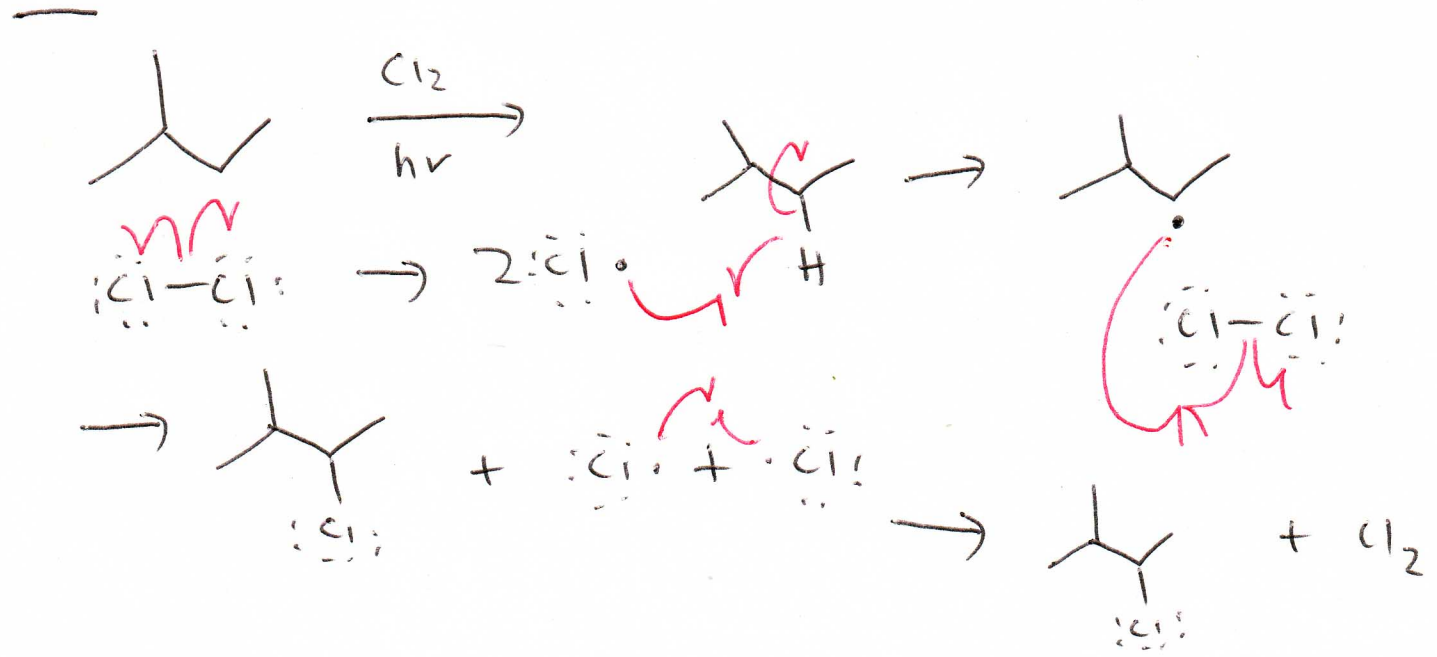 Cl2
hν
:Cl–Cl: → 2:Cl·
H
:Cl–Cl:
+ :Cl· + ·Cl:
:Cl:
+ Cl2
:Cl: